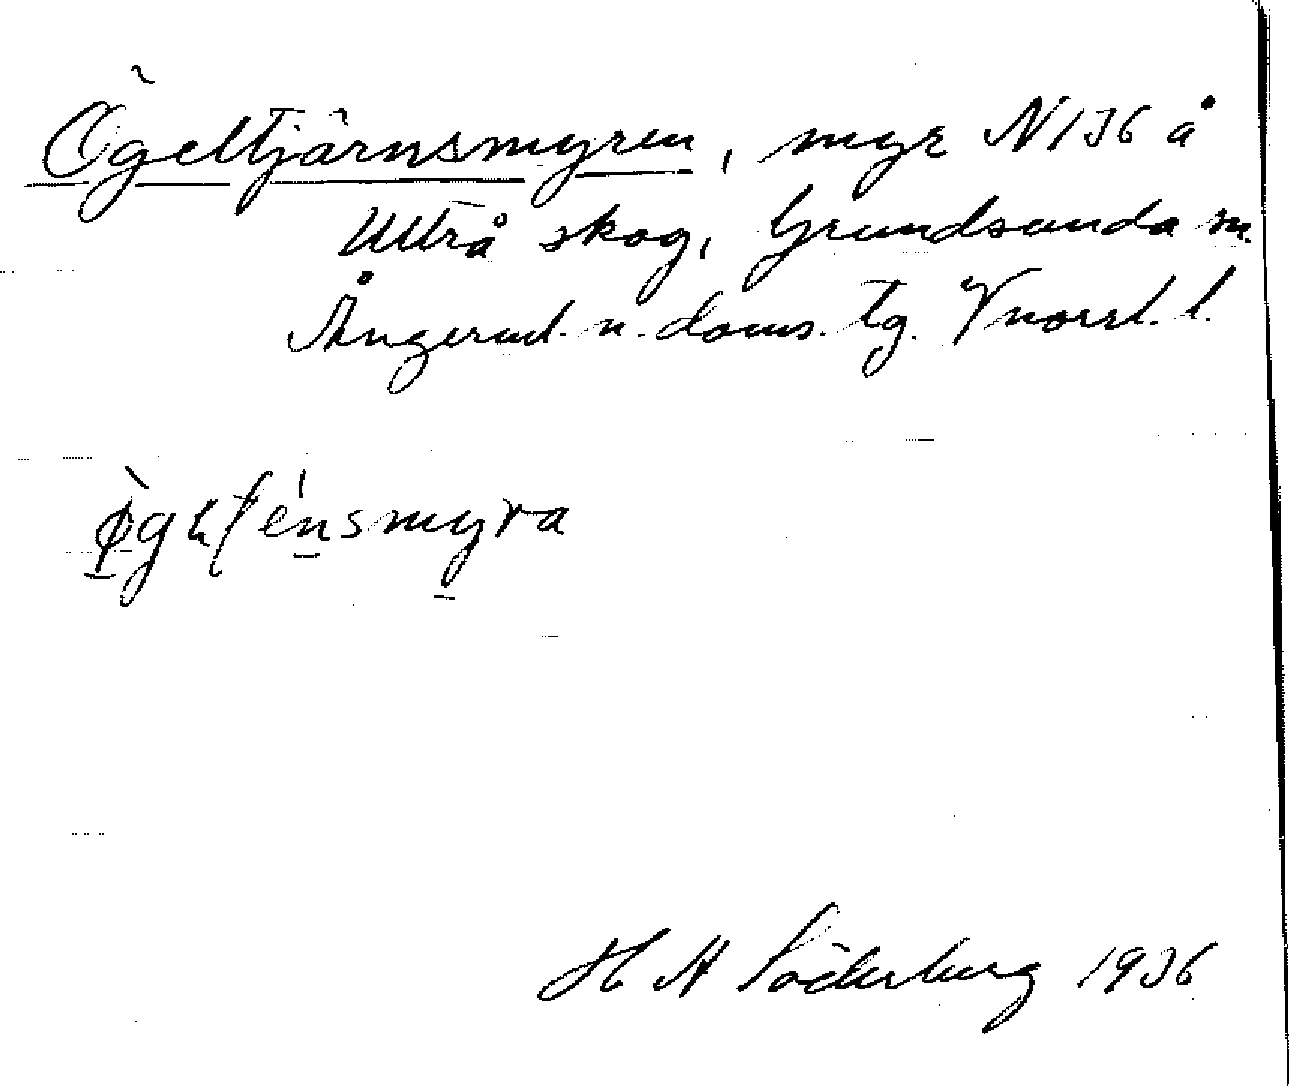 Ögeltjärnsmyren, myr N136 å
Utrå skog, Grundsunda sn.
Ångerml. n. doms. tg. Vnorrl. l.
H A Söderberg 1936